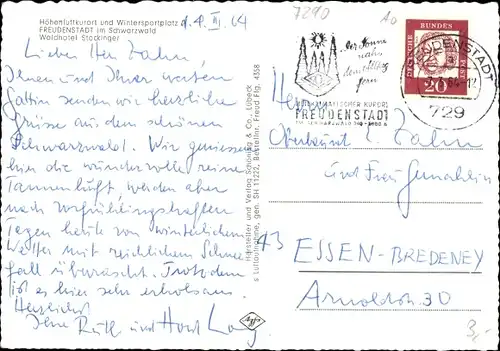 Höhenluftkurort und Wintersportplatz
FREUDENSTADT im Schwarzwald
Waldhotel Stockinger
d. 4. III. 64
7290
Lieber Herr Zahn,
Ihnen und Ihrer werten
Gattin senden wir herzliche
Grüsse aus dem schönen
Schwarzwald. Wir geniessen
hier die wundervolle reine
Tannenluft, werden aber
nach vorfrühlingshaften
Tagen heute von winterlichem
Wetter mit reichlichem Schnee-
fall überrascht. Trotzdem
ist es hier sehr erholsam.
Herzlichst
Ihre Ruth und Horst Lang
Hersteller und Verlag Schöning & Co., Lübeck
s Luftaufnahme, gen. SH 11222, Bestellnr. Freud Flg. 4358
der Sonne
nah
dem Alltag
fern
HEILKLIMATISCHER KURORT
FREUDENSTADT
IM SCHWARZWALD
DEUTSCHE
BUNDESPOST
20
FREUDENSTADT
729
Herrn
Oberkonst. C. Zahn
und Frau Gemahlin
43 ESSEN-BREDENEY
Arnoldstr. 30
3,-